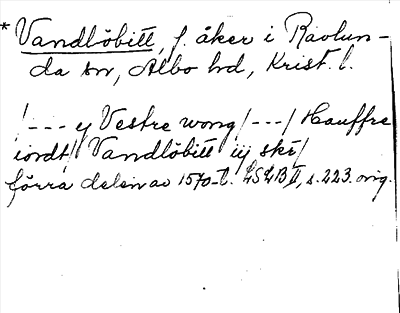 * Vandlöbitt, f. åker i Ravlun-
da sn, Albo hd, Krist. l.
/--- y Vestre wong/---/ Hauffre
iordt/ Vandlöbitt iij ske/
förra delen av 1570-t. LSLB II, s. 223. orig.